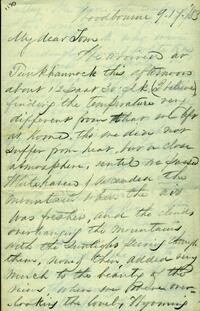 Woodbourne 9/17/83
My dear Tom
We arrived at
Tunkhannock this afternoon
about 12 past 3 o'clk (I believe)
finding the temperature very
different from that we left
at home, tho we did not
suffer from heat, but a close
atmosphere, until we passed
Whitehaven & ascended the
mountain when the air
was fresher, and the clouds
overhanging the mountains
with the sunlight seen through
them, now & then, added very
much to the beauty of the
views when we were over-
looking the lovely Wyoming